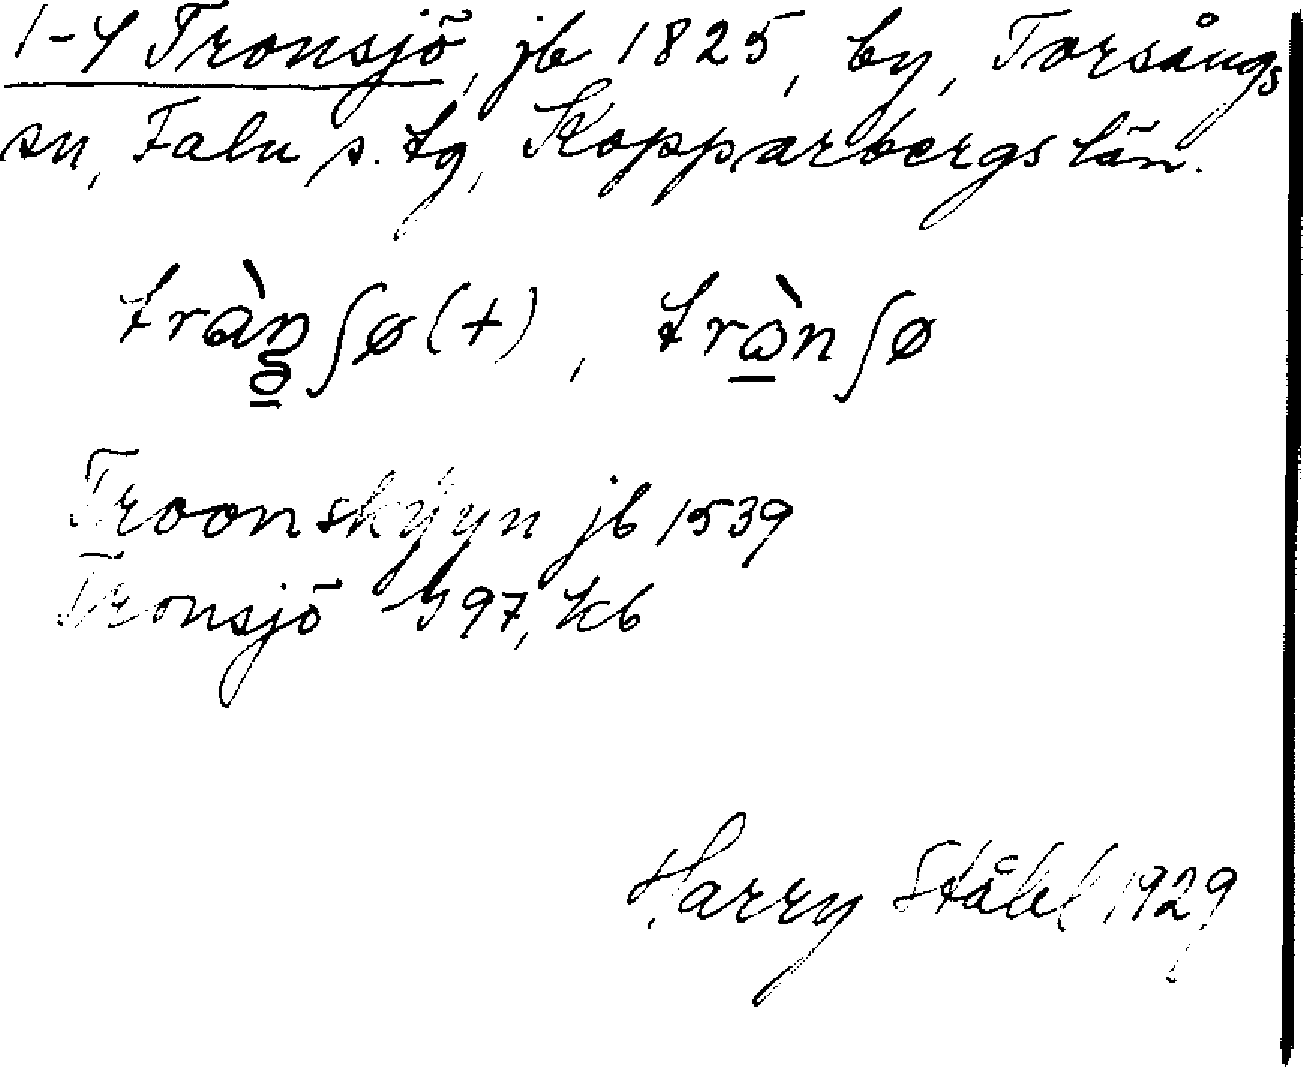 1-4 Tronsjö, jb 1825, by, Torsångs
sn, Falu s. tg, Kopparbergs län.
tràn ʃø (+), trɷ̀n ʃø
Troonskÿyn jb 1539
Tronsjö G97, Kb
Harry Ståhl 1929